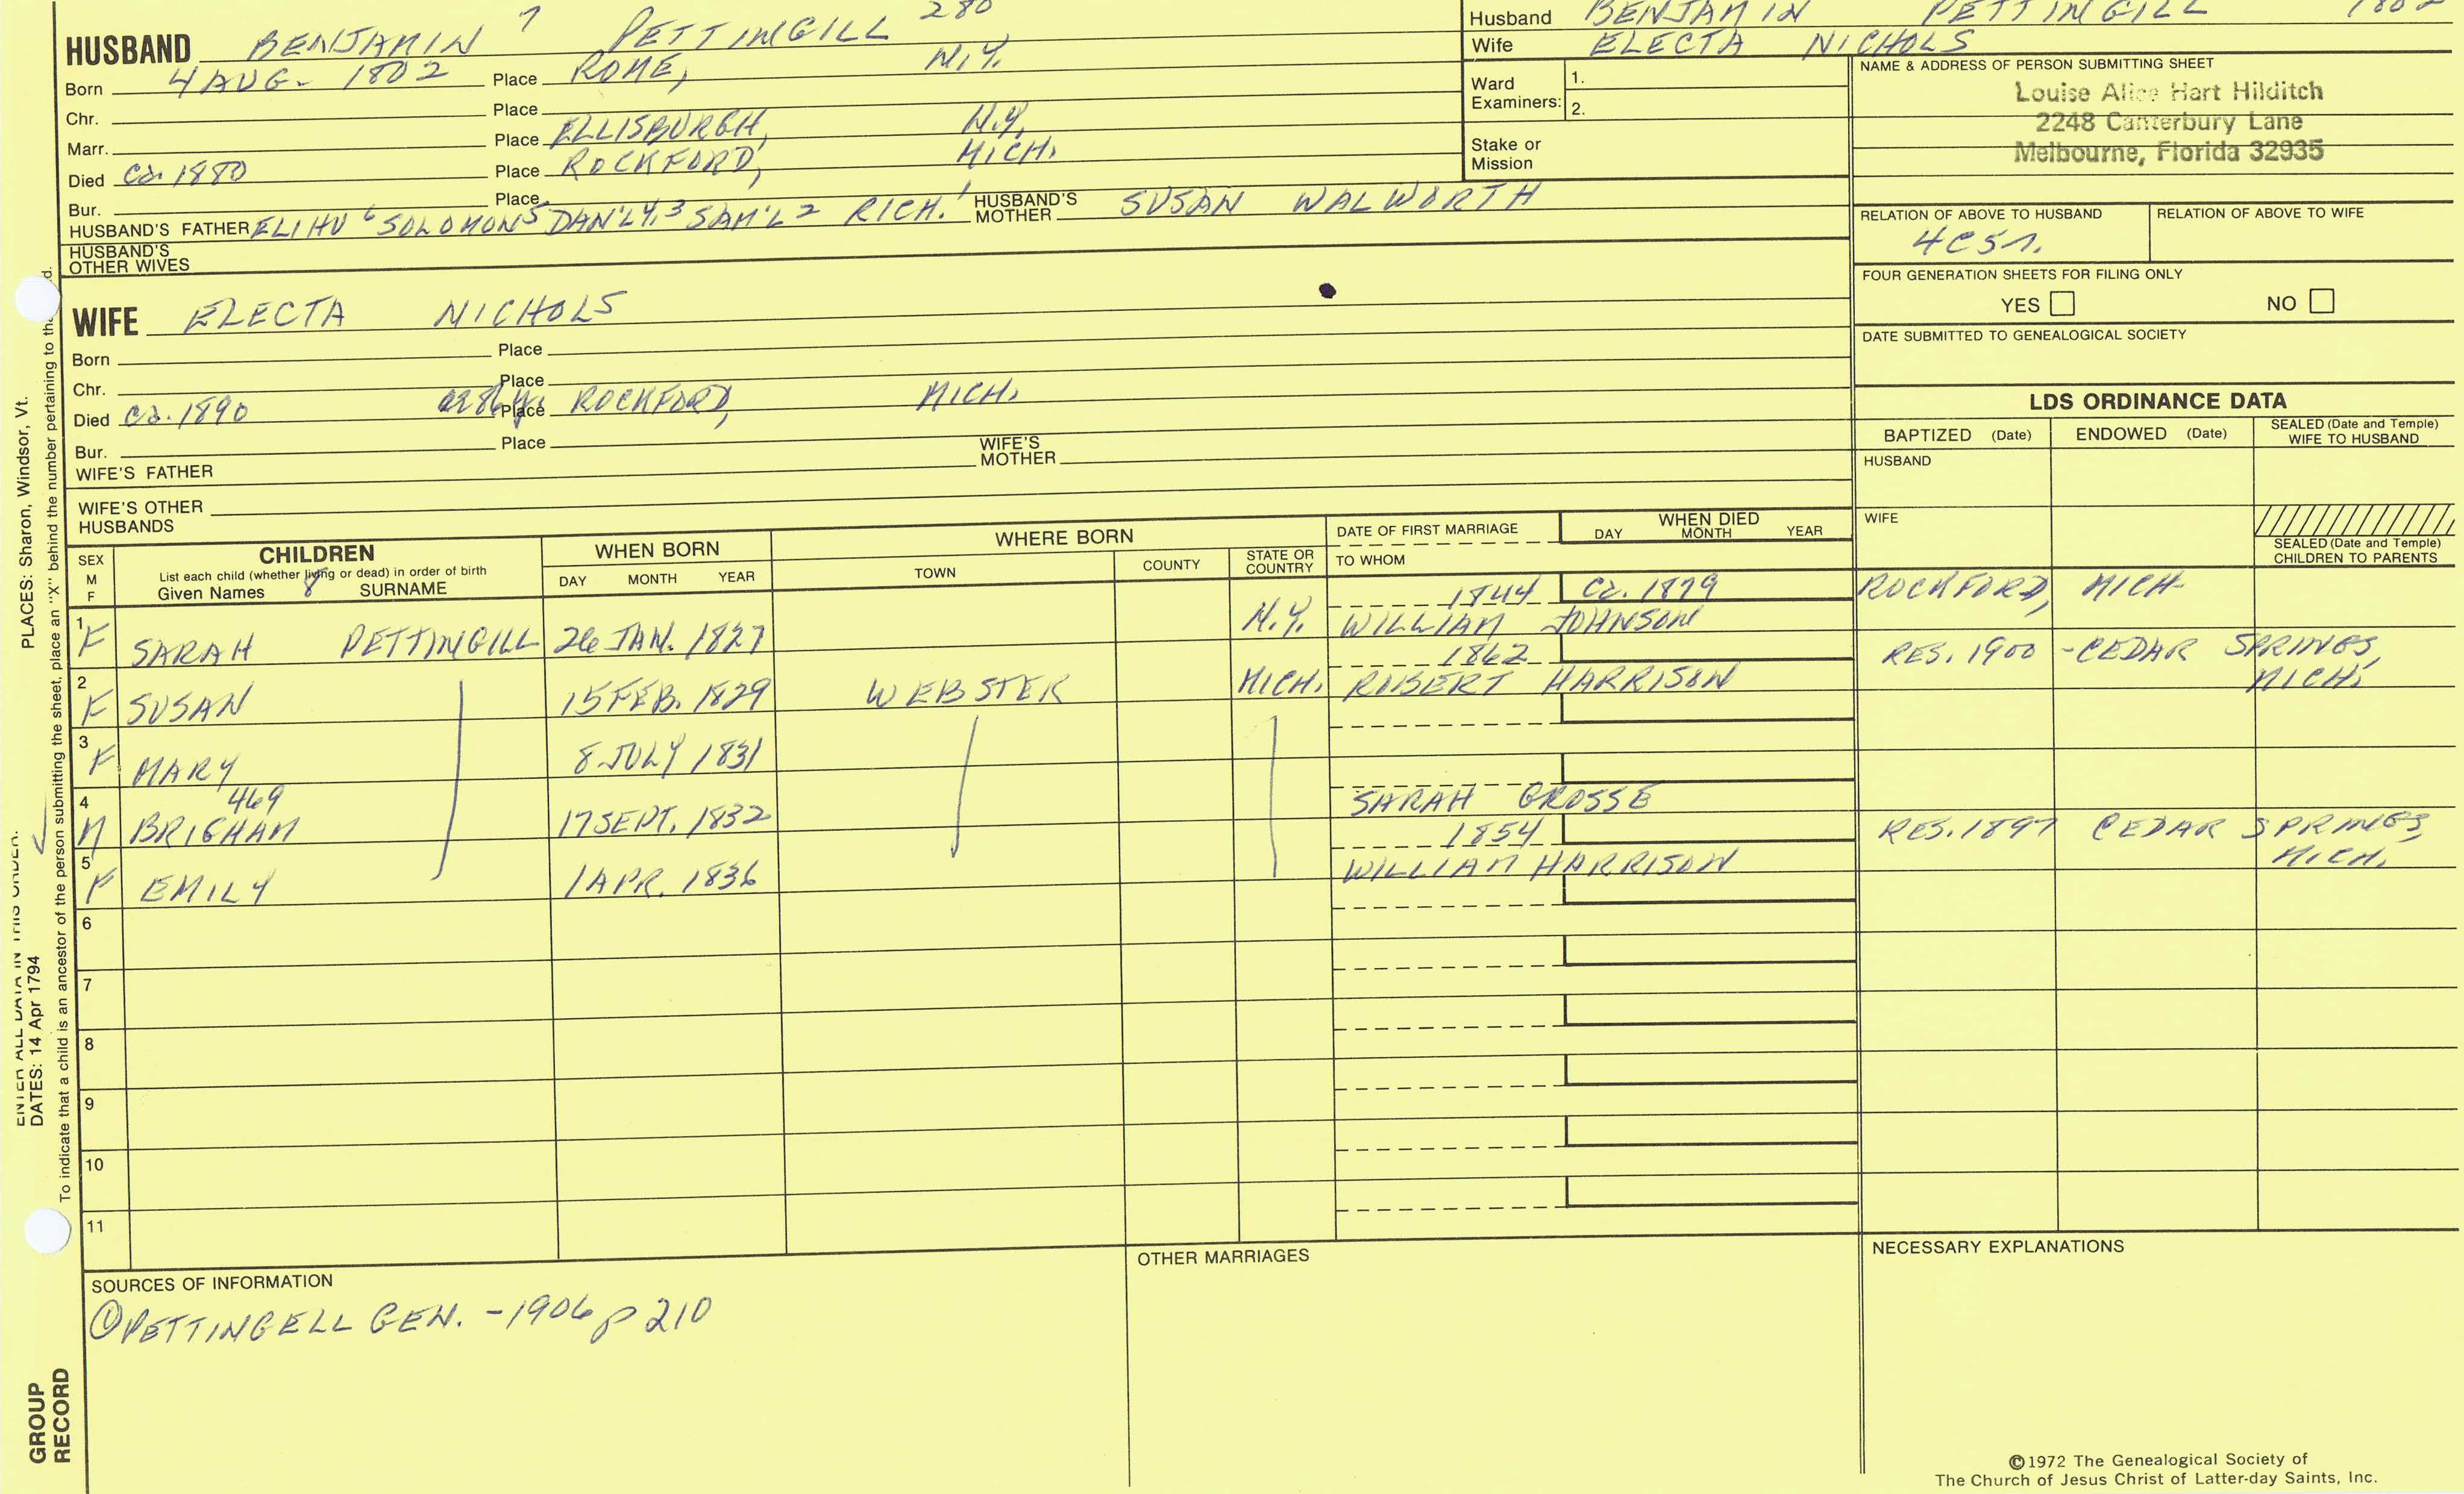 HUSBAND BENJAMIN 7 PETTINGILL 280
Born 4 AUG. 1802 Place ROME, N.Y.
Chr. Place
Marr. Place ELLISBURGH, N.Y.
Died ca. 1880 Place ROCKFORD, MICH.
Bur. Place
HUSBAND'S FATHER ELIHU 6 SOLOMON 5 DAN'L 4,3 SAM'L 2 RICH. 1 HUSBAND'S MOTHER SUSAN WALWORTH
HUSBAND'S OTHER WIVES
WIFE ELECTA NICHOLS
Born Place
Chr. Place
Died ca. 1890 Place ROCKFORD, MICH.
Bur. Place
WIFE'S FATHER WIFE'S MOTHER
WIFE'S OTHER HUSBANDS
Husband BENJAMIN PETTINGILL 1802
Wife ELECTA NICHOLS
Ward Examiners: 1.
2.
Stake or Mission
NAME & ADDRESS OF PERSON SUBMITTING SHEET
Louise Alice Hart Hilditch
2248 Canterbury Lane
Melbourne, Florida 32935
RELATION OF ABOVE TO HUSBAND RELATION OF ABOVE TO WIFE
4C5r.
FOUR GENERATION SHEETS FOR FILING ONLY
YES NO
DATE SUBMITTED TO GENEALOGICAL SOCIETY
LDS ORDINANCE DATA
BAPTIZED (Date) ENDOWED (Date) SEALED (Date and Temple) WIFE TO HUSBAND
HUSBAND
WIFE
SEALED (Date and Temple) CHILDREN TO PARENTS
SEX M F
CHILDREN
List each child (whether living or dead) in order of birth
Given Names 8 SURNAME
WHEN BORN
DAY MONTH YEAR
WHERE BORN
TOWN COUNTY STATE OR COUNTRY
DATE OF FIRST MARRIAGE
TO WHOM
WHEN DIED
DAY MONTH YEAR
1844 ca. 1879 ROCKFORD, MICH.
1 F SARAH PETTINGILL 26 JAN. 1827 N.Y. WILLIAM JOHNSON
1862 RES. 1900 - CEDAR SPRINGS, MICH.
2 F SUSAN 15 FEB. 1829 WEBSTER MICH. ROBERT HARRISON
3 F MARY 8 JULY 1831
469
4 M BRIGHAM 17 SEPT. 1832 SARAH GROSSE
1854 RES. 1897 CEDAR SPRINGS, MICH.
5 F EMILY 1 APR. 1836 WILLIAM HARRISON
6
7
8
9
10
11
SOURCES OF INFORMATION
① PETTINGELL GEN. - 1906 p 210
OTHER MARRIAGES
NECESSARY EXPLANATIONS
©1972 The Genealogical Society of
The Church of Jesus Christ of Latter-day Saints, Inc.
ENTER ALL DATA IN THIS ORDER:
DATES: 14 Apr 1794 PLACES: Sharon, Windsor, Vt.
To indicate that a child is an ancestor of the person submitting the sheet, place an "X" behind the number pertaining to
GROUP
RECORD